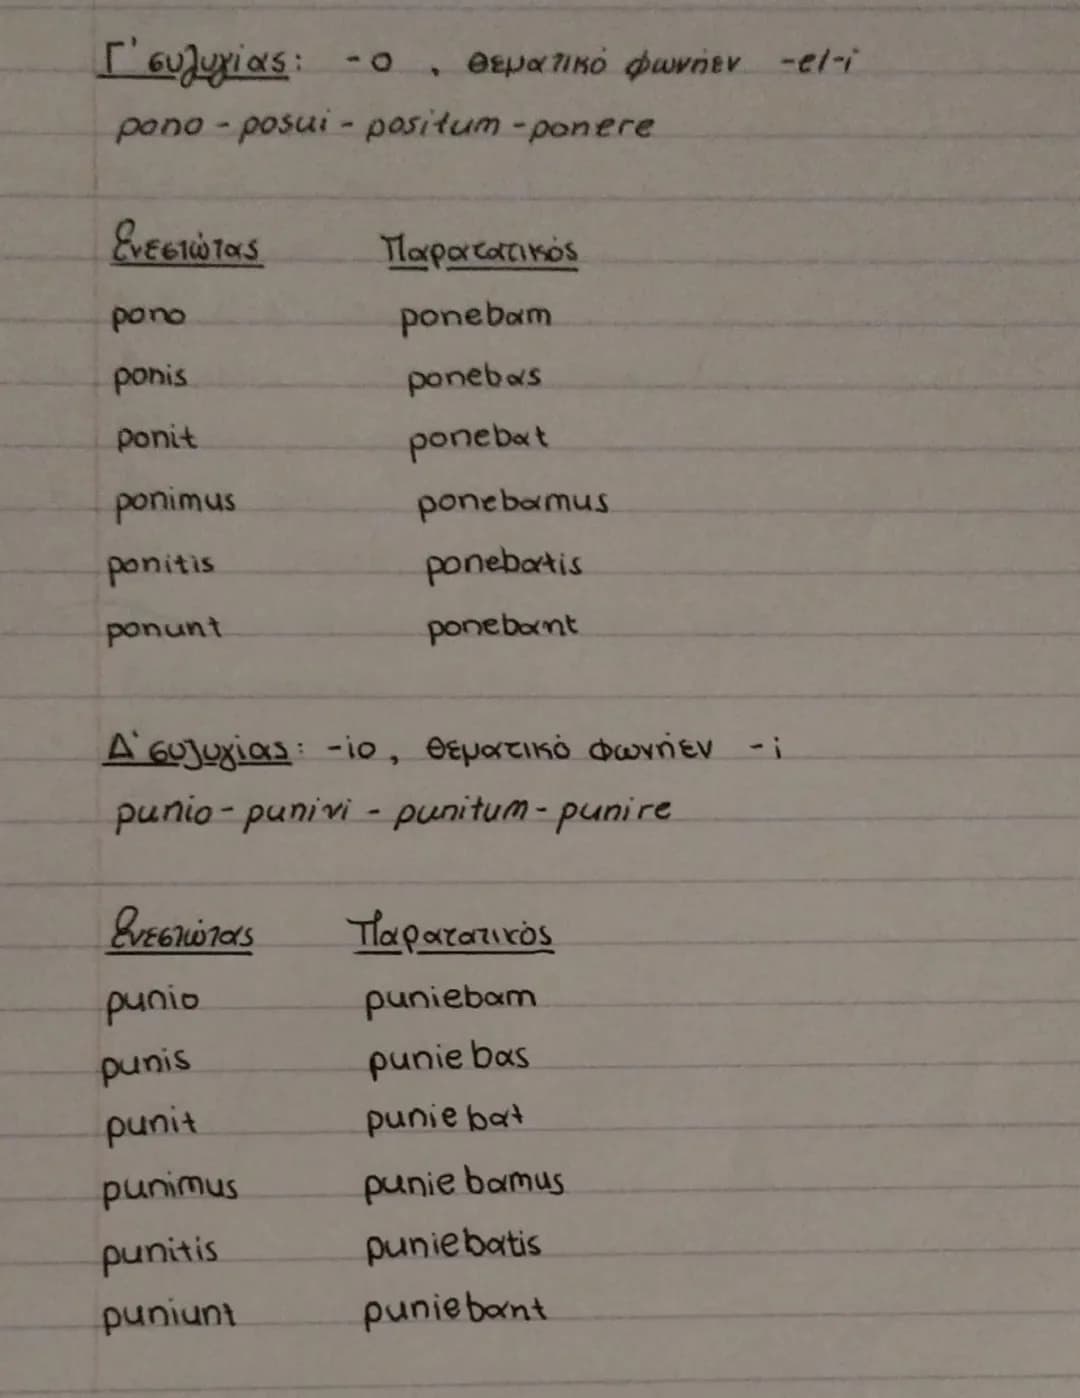 Γ' συζυγίας: -ο, θεματικό φωνήεν -e/-i
pono - posui - positum - ponere
Ενεστώτας Παρατατικός
pono ponebam
ponis ponebas
ponit ponebat
ponimus ponebamus
ponitis ponebatis
ponunt ponebant
Δ' συζυγίας: -io, θεματικό φωνήεν -i
punio - punivi - punitum - punire
Ενεστώτας Παρατατικός
punio puniebam
punis puniebas
punit puniebat
punimus puniebamus
punitis puniebatis
puniunt puniebant